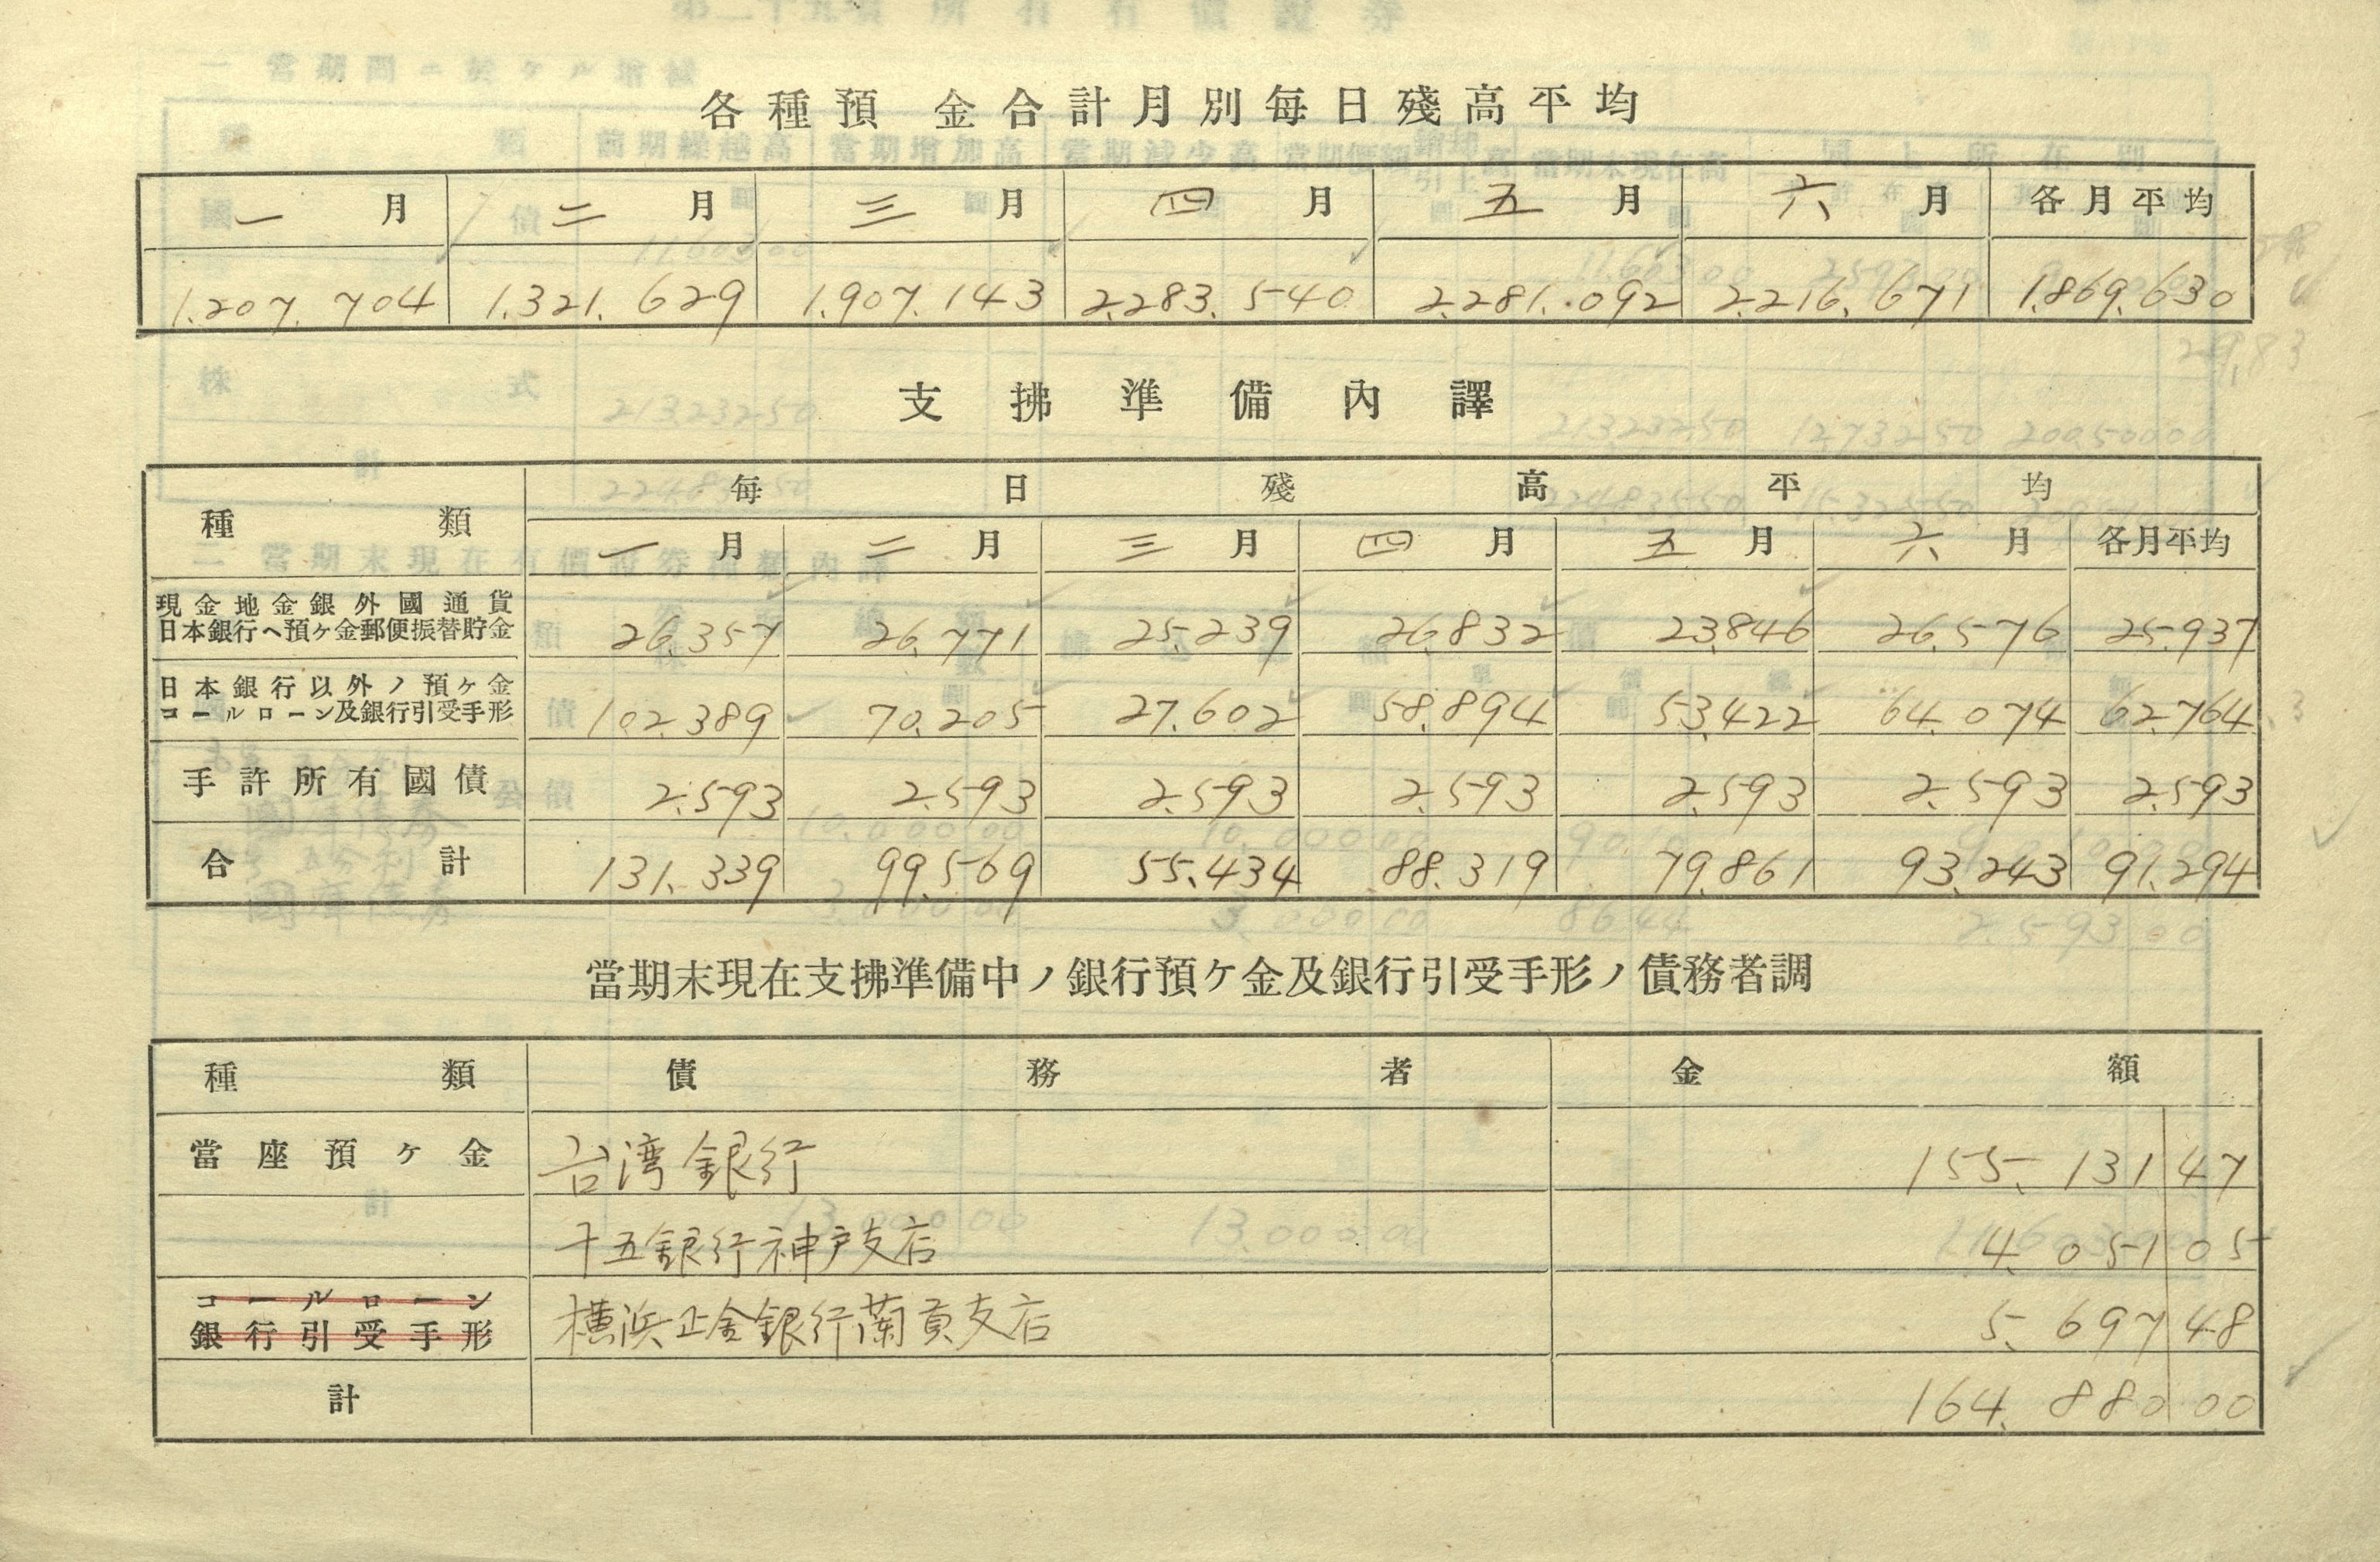 各種預金合計月別每日殘高平均
一月 二月 三月 四月 五月 六月 各月平均
1.207.704 1.321.629 1.907.143 2.283.540 2.281.092 2.216.671 1.869.630
支拂準備內譯
種類 每日殘高平均
一月 二月 三月 四月 五月 六月 各月平均
現金地金銀外國通貨
日本銀行ヘ預ヶ金郵便振替貯金 26.357 26.771 25.239 26.832 23.846 26.576 25.937
日本銀行以外ノ預ヶ金
コールローン及銀行引受手形 102.389 70.205 27.602 58.894 53.422 64.074 62.764
手許所有國債 2.593 2.593 2.593 2.593 2.593 2.593 2.593
合計 131.339 99.569 55.434 88.319 79.861 93.243 91.294
當期末現在支拂準備中ノ銀行預ケ金及銀行引受手形ノ債務者調
種類 債務者 金額
當座預ヶ金 台湾銀行 155.131 47
十五銀行神戸支店 4.051 05
コールローン
銀行引受手形 横浜正金銀行蘭貢支店 5.697 48
計 164.880 00